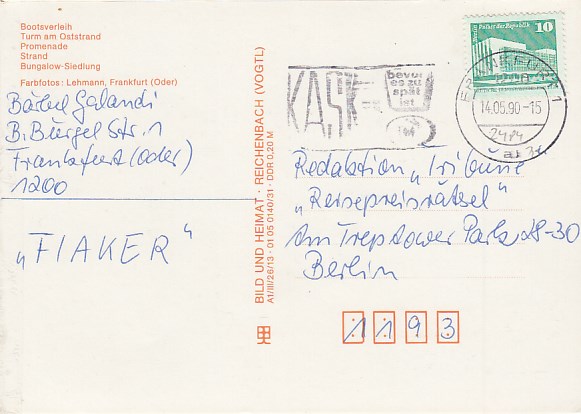 Bootsverleih
Turm am Oststrand
Promenade
Strand
Bungalow-Siedlung
Farbfotos: Lehmann, Frankfurt (Oder)
Bärbel Galandi
B. Bürgel Str. 1
Frankfurt (Oder)
1200
"FIAKER"
BILD UND HEIMAT · REICHENBACH (VOGTL)
A1/III/26/13 · 01 05 0140/31 · DDR 0,20 M
KASK
bevor
es zu
spät
ist
10
Palast der Republik
FRANKFURT 1
14.06.90-15
Redaktion "Tribüne"
"Reisepreisrätsel"
Am Treptower Park 28-30
Berlin
1193